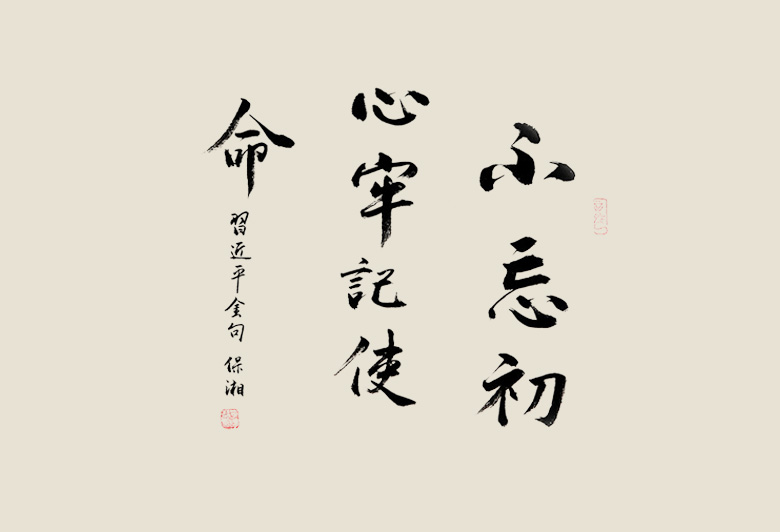 不忘初
心牢記使
命
習近平金句 保湘